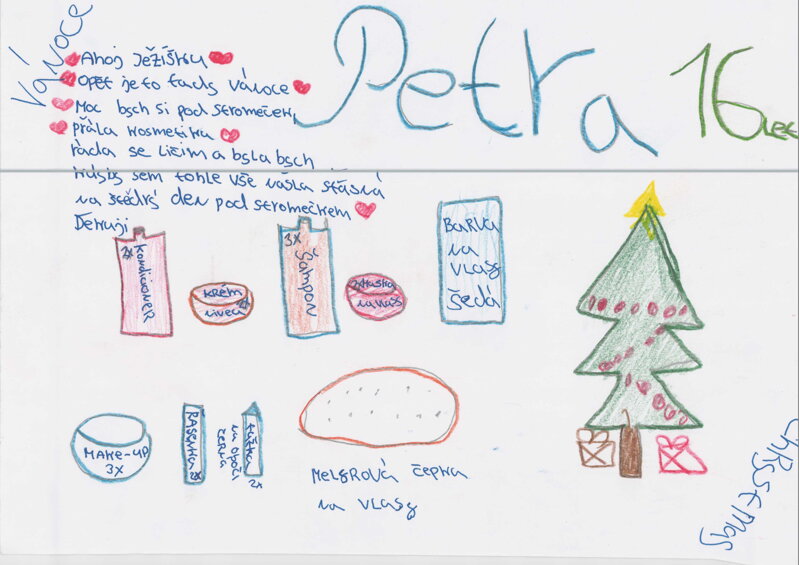 Vánoce
Petra
16 let
Ahoj Ježíšku
Opět je to tady vánoce
Moc bych si pod stromeček
přála kosmetika
ráda se líčím a byla bych
kdyby sem tohle vše našla štásná
na štědrý den pod stromečkem
Děkuji
2x
Kondicioner
KRÉM
NIVEA
3x
ŠAMPON
2x Maska
na vlasy
BARVA
NA
VLASY
ŠEDÁ
MAKE-UP
3x
ŘASENKA 2x
tužka
na oboči
černá
2x
Melírová čepka
na vlasy
Chrystmas